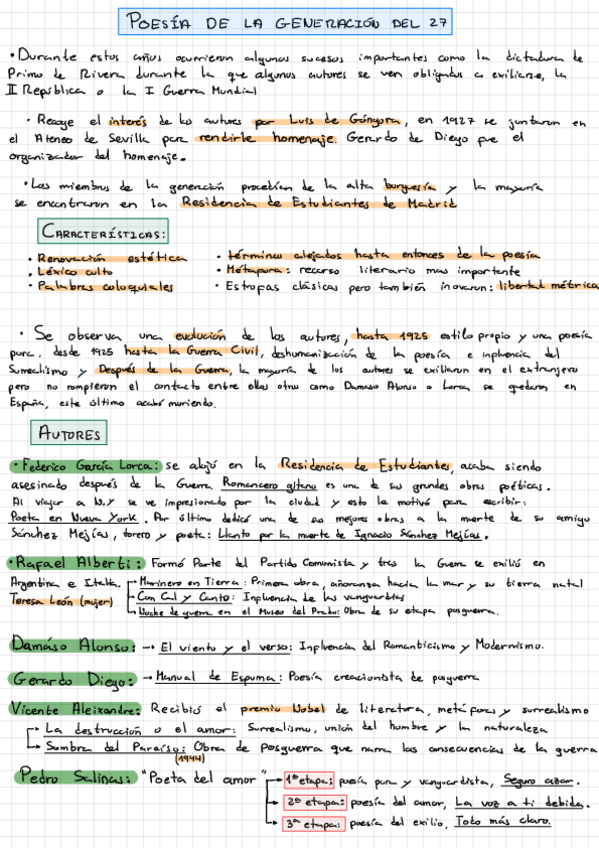 POESÍA DE LA GENERACIÓN DEL 27
• Durante estos años ocurrieron algunos sucesos importantes como la dictadura de
Primo de Rivera durante la que algunos autores se ven obligados a exiliarse, la
II República o la I Guerra Mundial
• Recoge el interés de los autores por Luis de Góngora, en 1927 se juntaron en
el Ateneo de Sevilla para rendirle homenaje. Gerardo de Diego fue el
organizador del homenaje.
• Los miembros de la generación procedían de la alta burguesía y la mayoría
se encontraron en la Residencia de Estudiantes de Madrid
CARACTERÍSTICAS:
• Renovación estética
• Léxico culto
• Palabras coloquiales
• términos alejados hasta entonces de la poesía
• Metáfora: recurso literario mas importante
• Estrofas clásicas pero también inovaron: libertad métrica
• Se observa una evolución de los autores, hasta 1925 estilo propio y una poesía
pura, desde 1925 hasta la Guerra Civil, deshumanización de la poesía e influencia del
Surrealismo y Después de la Guerra, la mayoría de los autores se exiliaron en el extranjero
pero no rompieron el contacto entre ellos otros como Damaso Alonso o Lorca se quedaron en
España, este último acabó muriendo.
AUTORES
• Federico García Lorca: se alojó en la Residencia de Estudiantes, acaba siendo
asesinado después de la Guerra. Romancero gitano es una de sus grandes obras poéticas.
Al viajar a N.Y se ve impresionado por la ciudad y esto le motivó para escribir:
Poeta en Nueva York. Por último dedicó una de sus mejores obras a la muerte de su amigo
Sánchez Mejías, torero y poeta: Llanto por la muerte de Ignacio Sánchez Mejías.
• Rafael Alberti: Formó Parte del Partido Comunista y tras la Guerra se exilió en
Argentina e Italia.
Teresa León (mujer)
Marinero en Tierra: Primera obra, añoranza hacia la mar y su tierra natal
Con Cal y Canto: Influencia de las vanguardias
Noche de guerra en el Museo del Prado: Obra de su etapa posguerra.
Damáso Alonso: → El viento y el verso: Influencia del Romanticismo y Modernismo.
Gerardo Diego: → Manual de Espuma: Poesía creacionista de posguerra
Vicente Aleixandre: Recibió el premio Nobel de literatura, metáforas y surrealismo
La destrucción o el amor: Surrealismo, unión del hombre y la naturaleza
Sombra del Paraíso: Obra de Posguerra que narra las consecuencias de la guerra
(1944)
Pedro Salinas: "Poeta del amor"
1ª etapa: poesía pura y vanguardista, Seguro azar.
2ª etapa: poesía del amor, La voz a ti debida.
3ª etapa: poesía del exilio, Todo más claro.